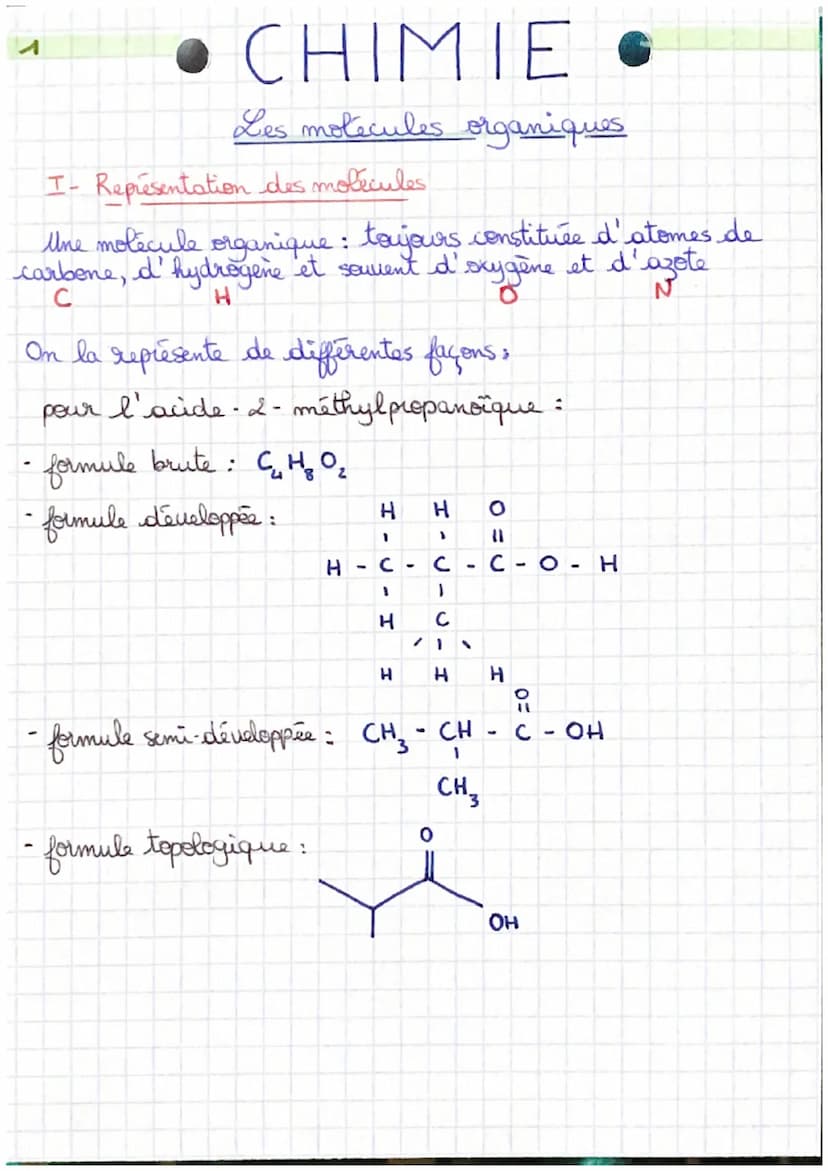 1
CHIMIE
Les molécules organiques
I- Représentation des molécules
Une molécule organique : toujours constituée d'atomes de
carbone, d'hydrogène et souvent d'oxygène et d'azote
C H O N
On la représente de différentes façons :
pour l'acide-2-méthylpropanoïque :
- formule brute : C₄H₈O₂
- formule développée :
H H O
H - C - C - C - O - H
H C
H H H
O
- formule semi-développée : CH₃ - CH - C - OH
CH₃
- formule topologique :
O
OH